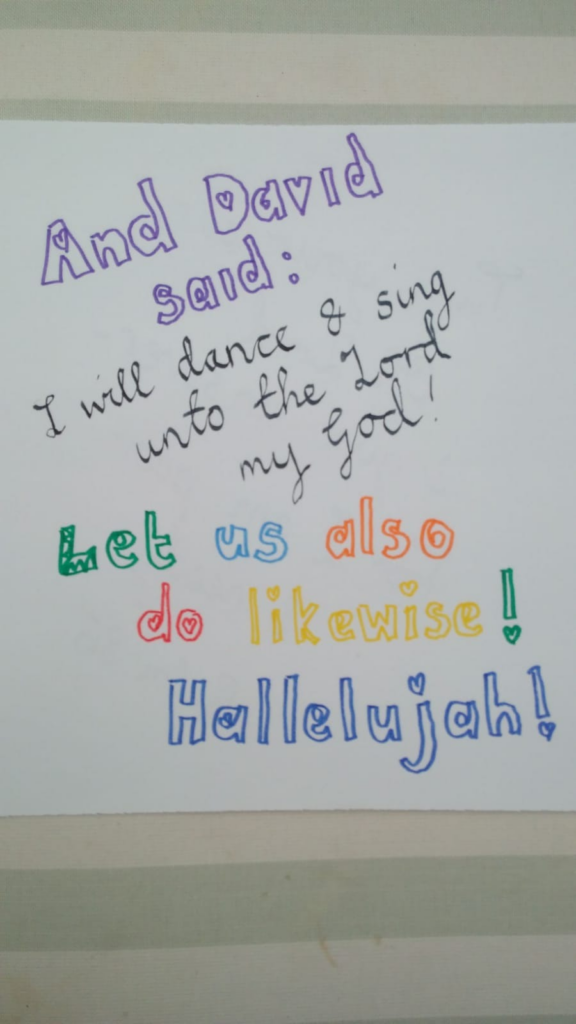 And David
said:
I will dance & sing
unto the Lord
my God!
Let us also
do likewise!
Hallelujah!